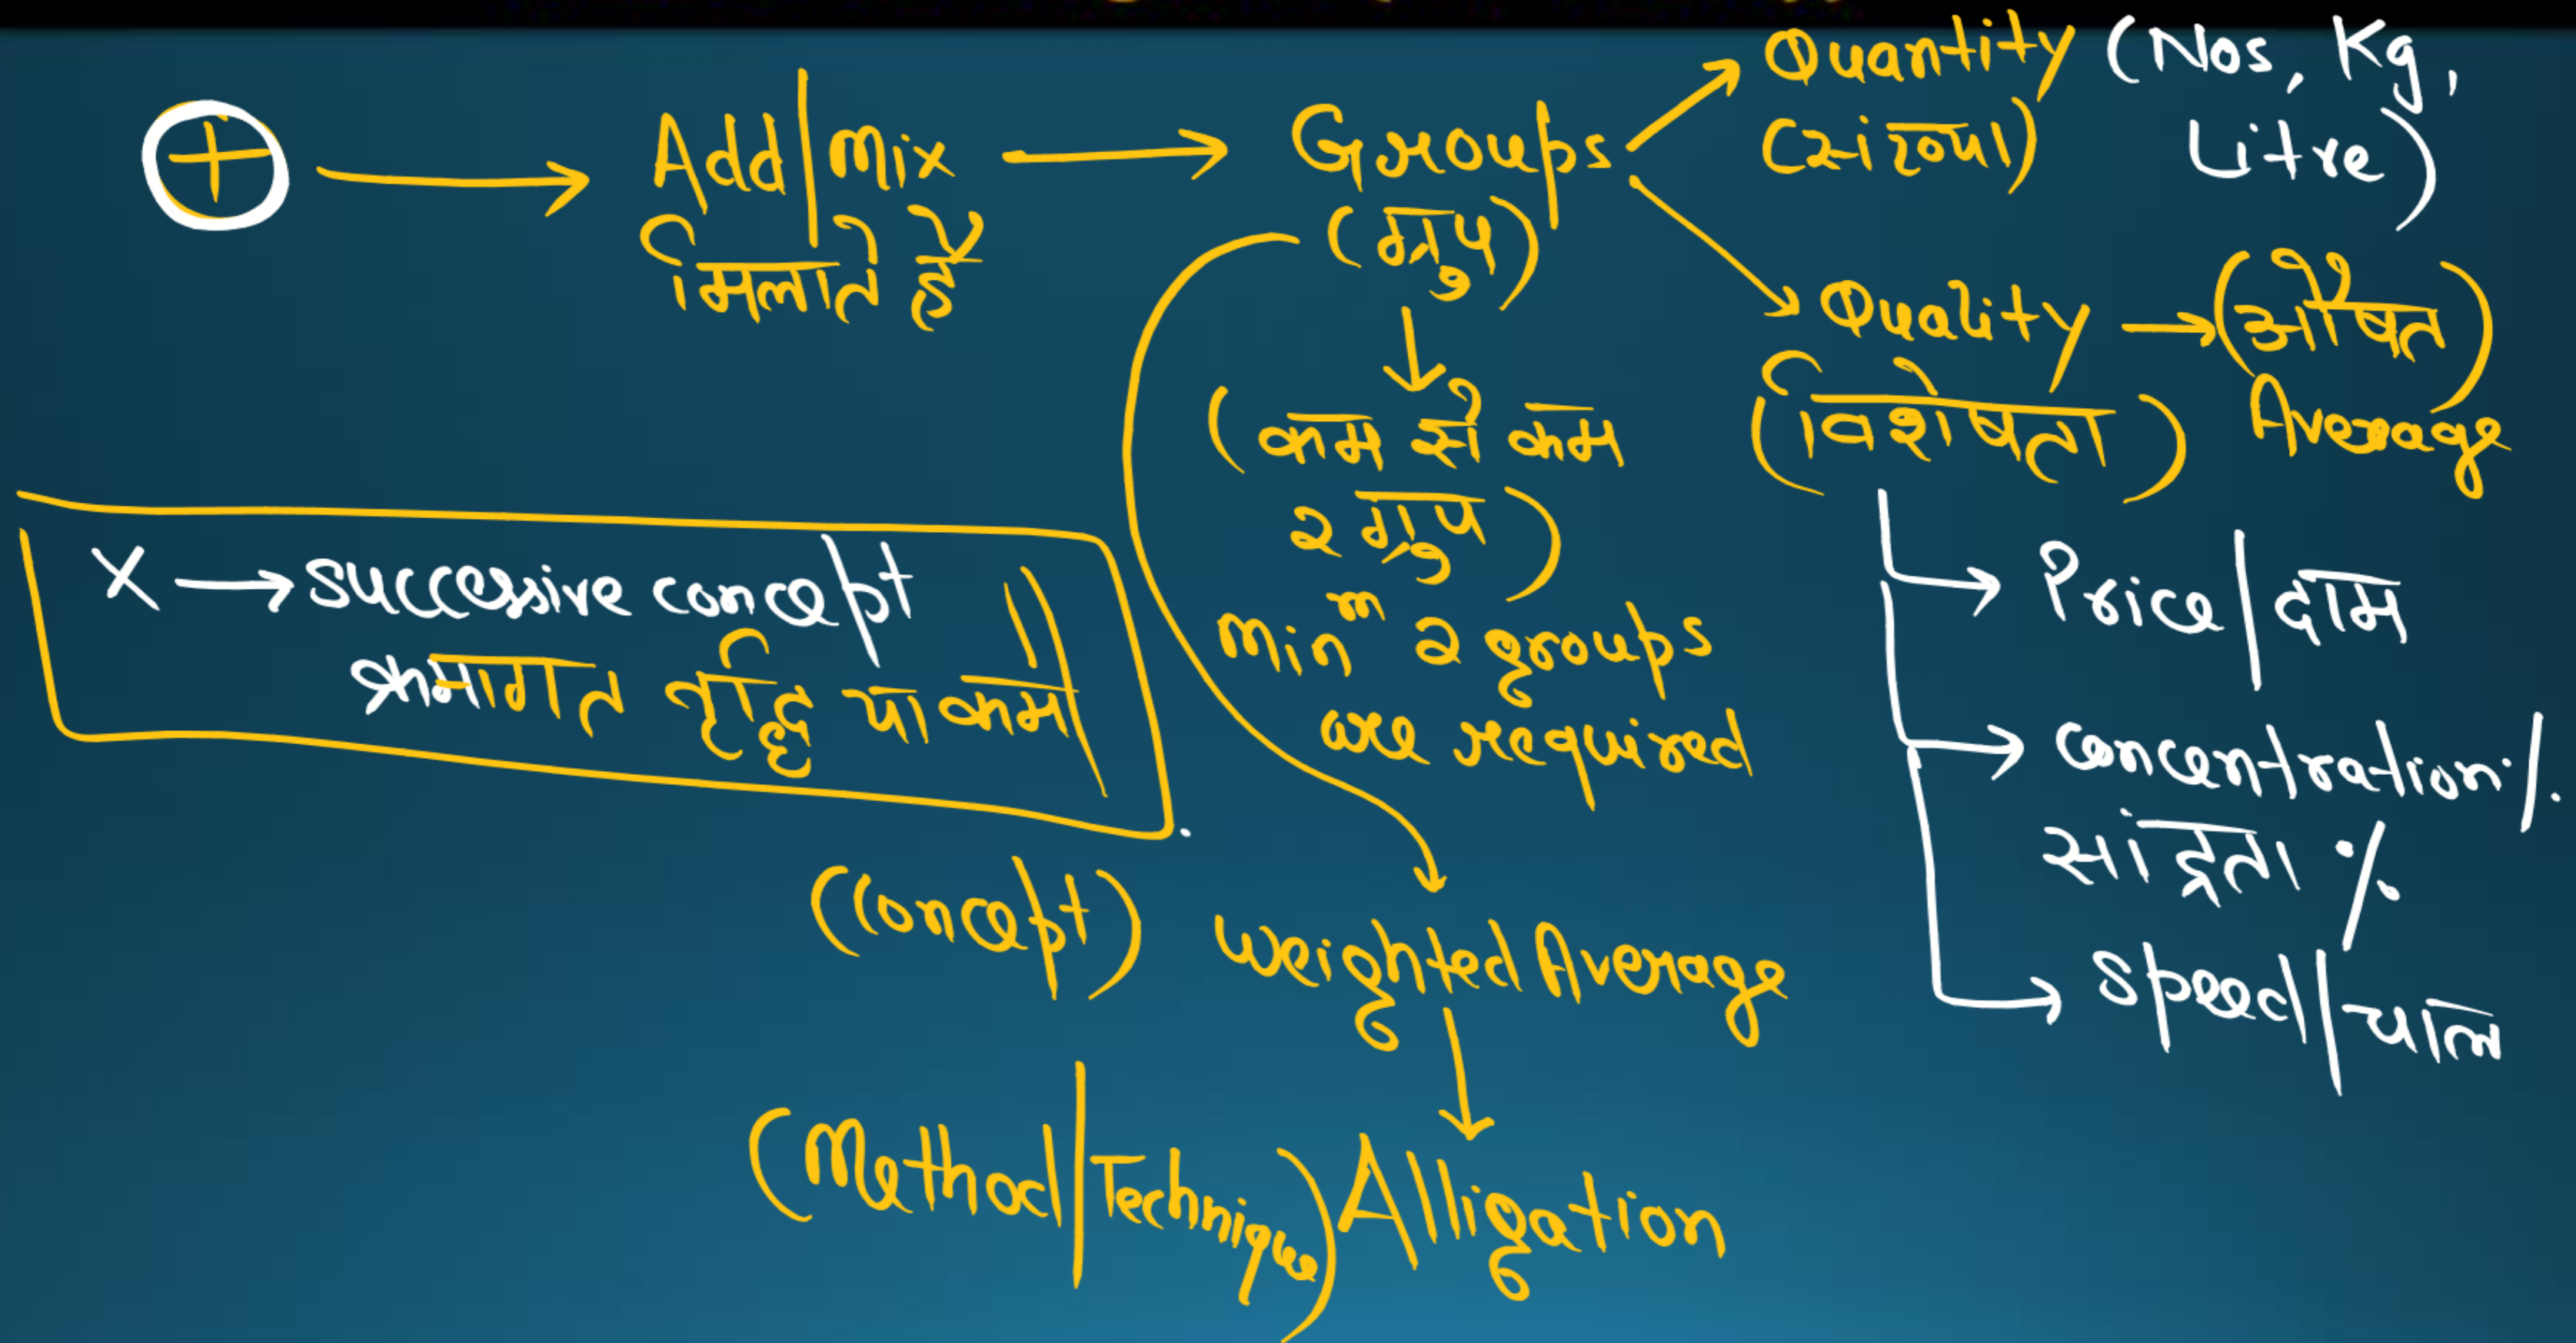 + → Add/mix → Groups
मिलाते हैं
(ग्रुप)
Quantity (Nos, Kg,
(संख्या) Litre)
Quality → (औषत)
(विशेषता) Average
(कम से कम
2 ग्रुप)
minᵐ 2 groups
are required
Price/दाम
Concentration %
सांद्रता %
Speed/चाल
× → successive concept
क्रमागत वृद्धि या कमी
(Concept) Weighted Average
(Method/Technique) Alligation